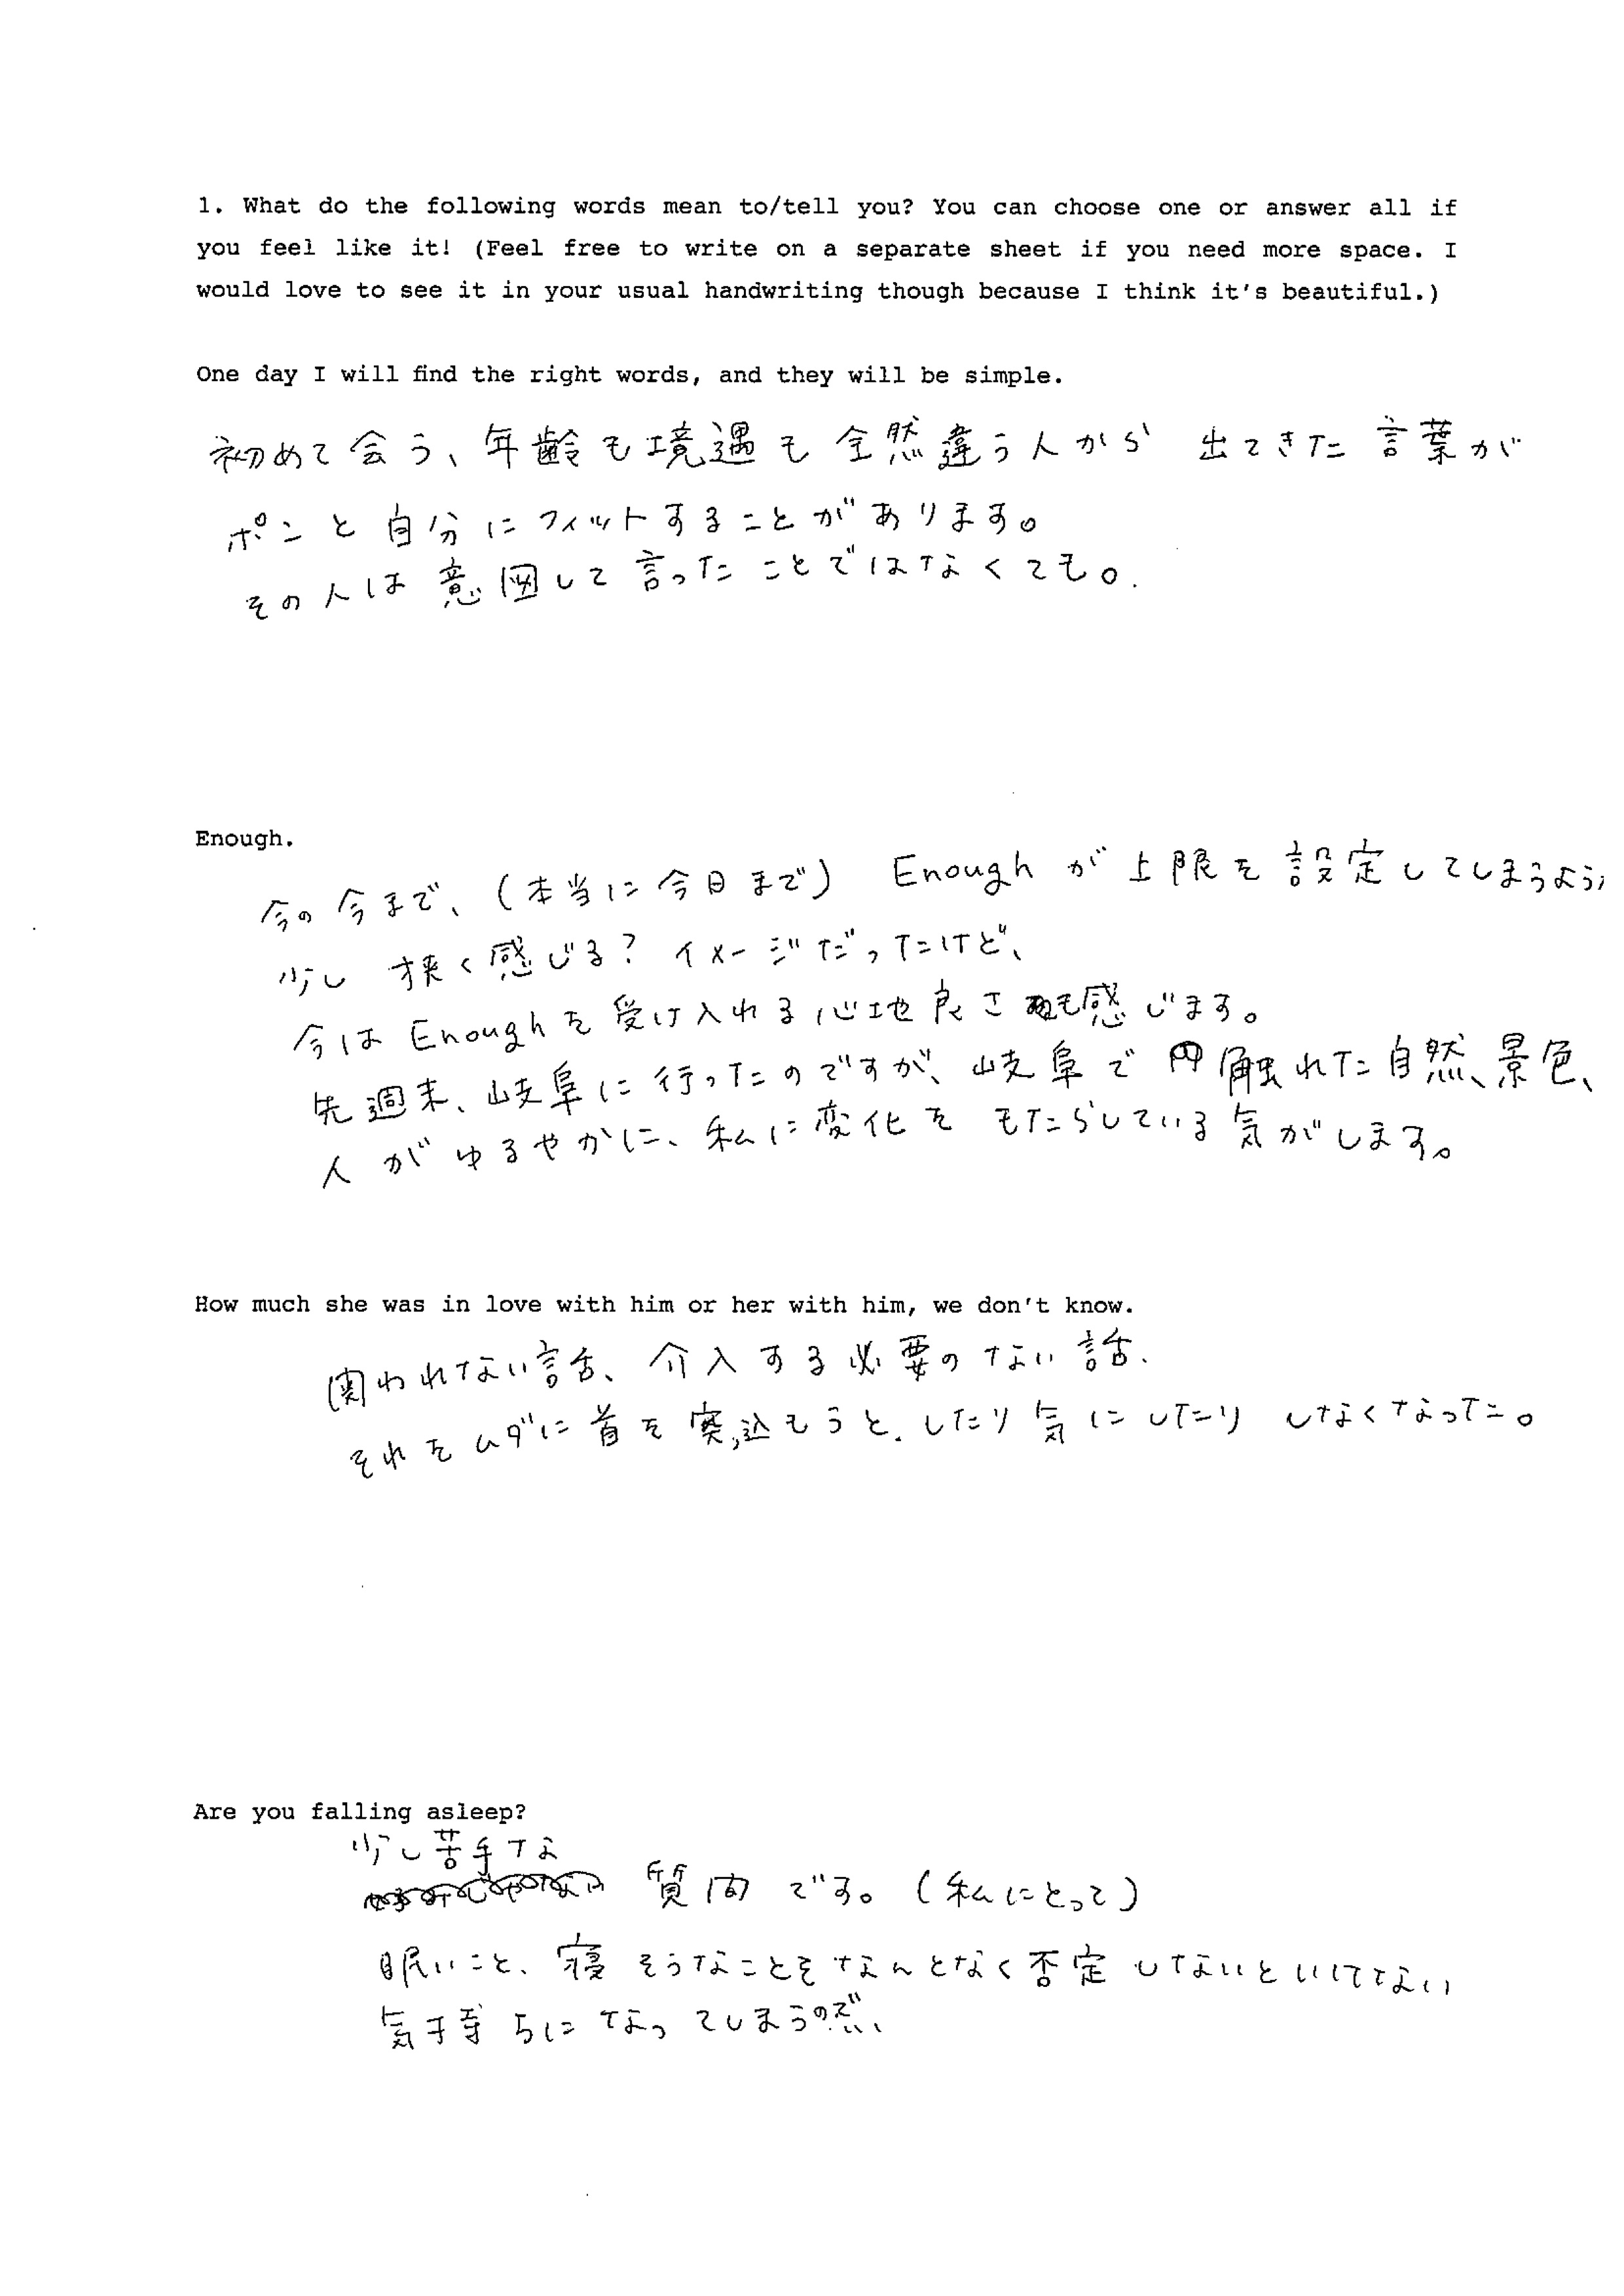 1. What do the following words mean to/tell you? You can choose one or answer all if
you feel like it! (Feel free to write on a separate sheet if you need more space. I
would love to see it in your usual handwriting though because I think it's beautiful.)
One day I will find the right words, and they will be simple.
初めて会う、年齢も境遇も全然違う人から 出てきた言葉が
ポンと自分にフィットすることがあります。
その人は意図して言ったことではなくても。
Enough.
今の今まで、(本当に今日まで) Enoughが上限を設定してしまうような
少し 狭く感じる?イメージだったけど、
今はEnoughを受け入れる心地良さも感じます。
先週末、岐阜に行ったのですが、岐阜で触れた自然、景色、
人がゆるやかに、私に変化をもたらしている気がします。
How much she was in love with him or her with him, we don't know.
関われない話、介入する必要のない話.
それをムダに首を突込もうと.したり気にしたりしなくなった。
Are you falling asleep?
少し苦手な
質問です。(私にとって)
眠いこと、寝そうなことをなんとなく否定しないといけない
気持ちになってしまうので、